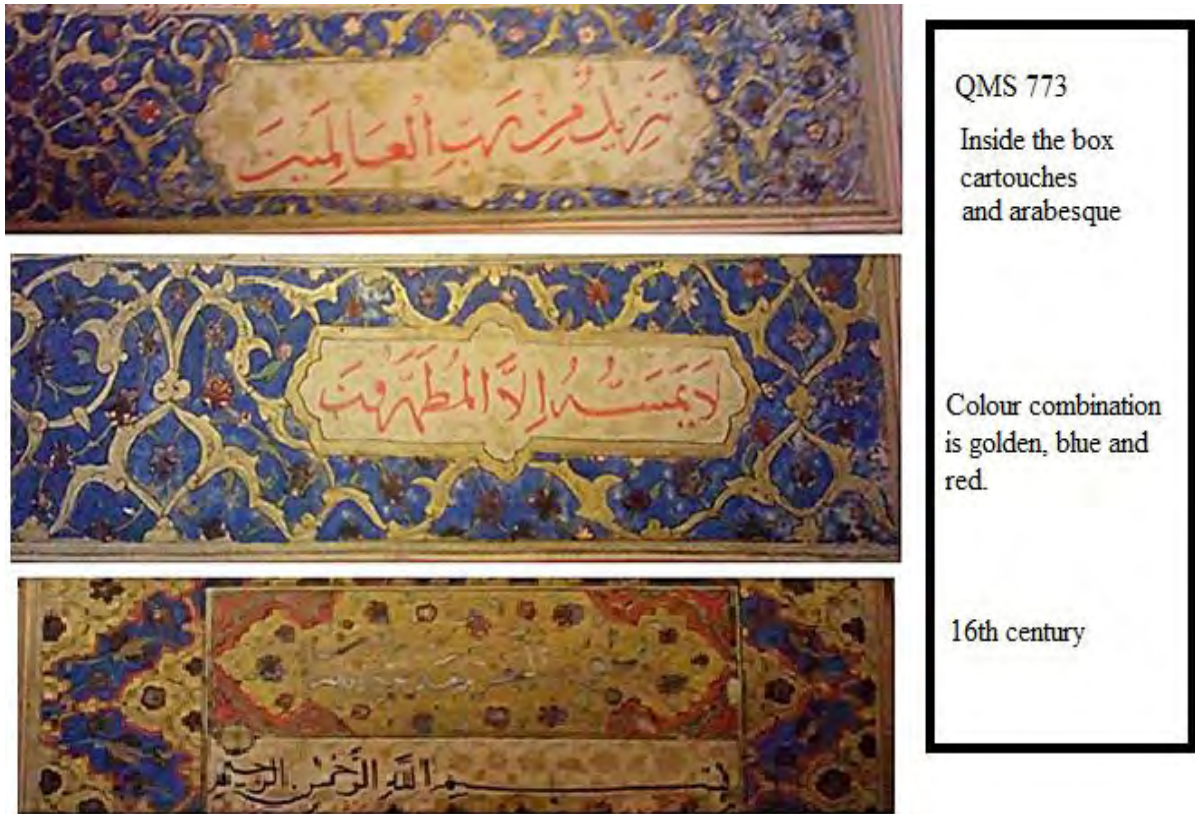 تَنْزِيلٌ مِنْ رَبِّ الْعَالَمِينَ
لَا يَمَسُّهُ إِلَّا الْمُطَهَّرُونَ
بِسْمِ اللَّهِ الرَّحْمَٰنِ الرَّحِيمِ
QMS 773
Inside the box
cartouches
and arabesque
Colour combination
is golden, blue and
red.
16th century